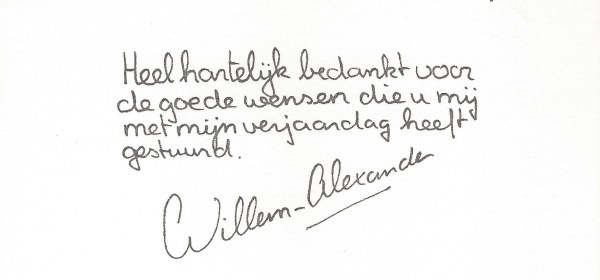 Heel hartelijk bedankt voor
de goede wensen die u mij
met mijn verjaardag heeft
gestuurd.
Willem-Alexander